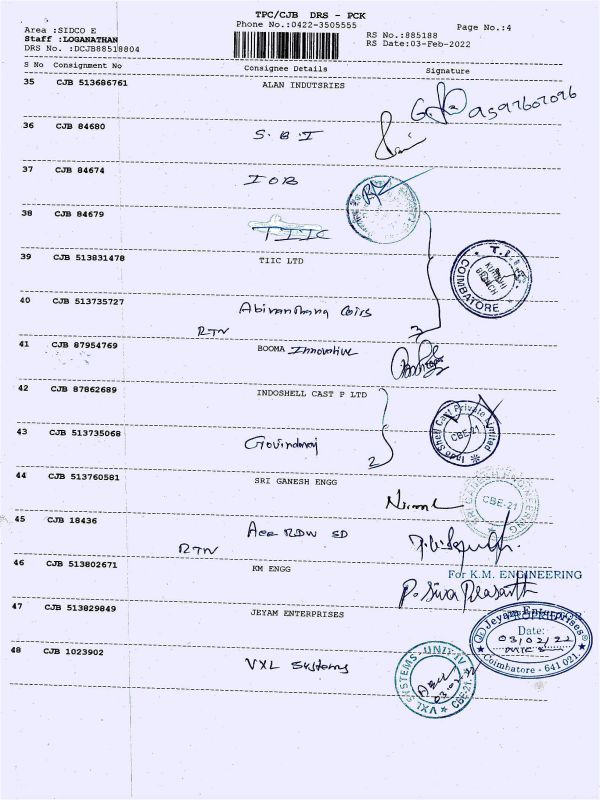 TPC/CJB DRS - PCK
Phone No.:0422-3505555
Page No.:4
Area :SIDCO E
Staff :LOGANATHAN
DRS No. :DCJB88518804
RS No.:885188
RS Date:03-Feb-2022
S No Consignment No Consignee Details Signature
35 CJB 513686761 ALAN INDUTSRIES
36 CJB 84680 S.B.I
37 CJB 84674 IOB
38 CJB 84679 TIIC
39 CJB 513831478 TIIC LTD
KURICHI BRANCH
COIMBATORE
40 CJB 513735727
RTN
3
41 CJB 87954769 BOOMA Innovative
42 CJB 87862689 INDOSHELL CAST P LTD
Indo Shell Cast Private Limited
CBE-21
43 CJB 513735068 Govindaraj
2
44 CJB 513760581 SRI GANESH ENGG
Nirmal
SRI GANESH ENGINEERING
CBE-21
45 CJB 18436
RTN
46 CJB 513802671 KM ENGG
For K.M. ENGINEERING
P. Siva Prasanth
47 CJB 513829849 JEYAM ENTERPRISES
Jeyam Enterprises
Date:
03/02/22
Coimbatore - 641 021.
48 CJB 1023902 VXL Systems
VXL SYSTEMS UNIT-IV
CBE-21